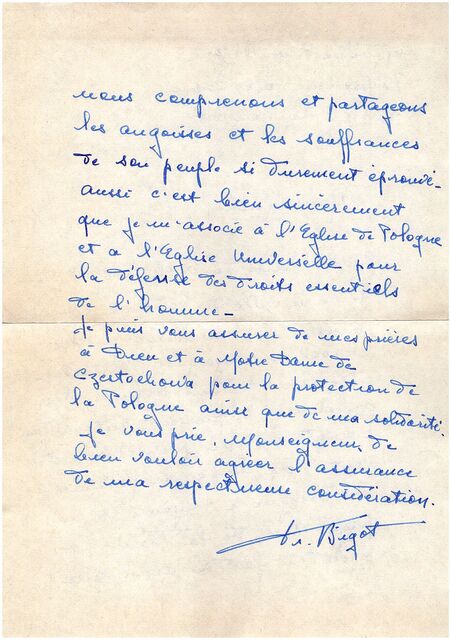 nous comprenons et partageons
les angoisses et les souffrances
de son peuple si durement éprouvé -
aussi c'est bien sincèrement
que je m'associe à l'Eglise de Pologne
et a l'Eglise Universelle pour
la défense des droits essentiels
de l'homme -
Je puis vous assurer de mes prières
à Dieu et à Notre Dame de
Czestochowa pour la protection de
la Pologne ainsi que de ma solidarité.
Je vous prie, Monseigneur, de
bien vouloir agréer l'assurance
de ma respectueuse considération.
Bigot